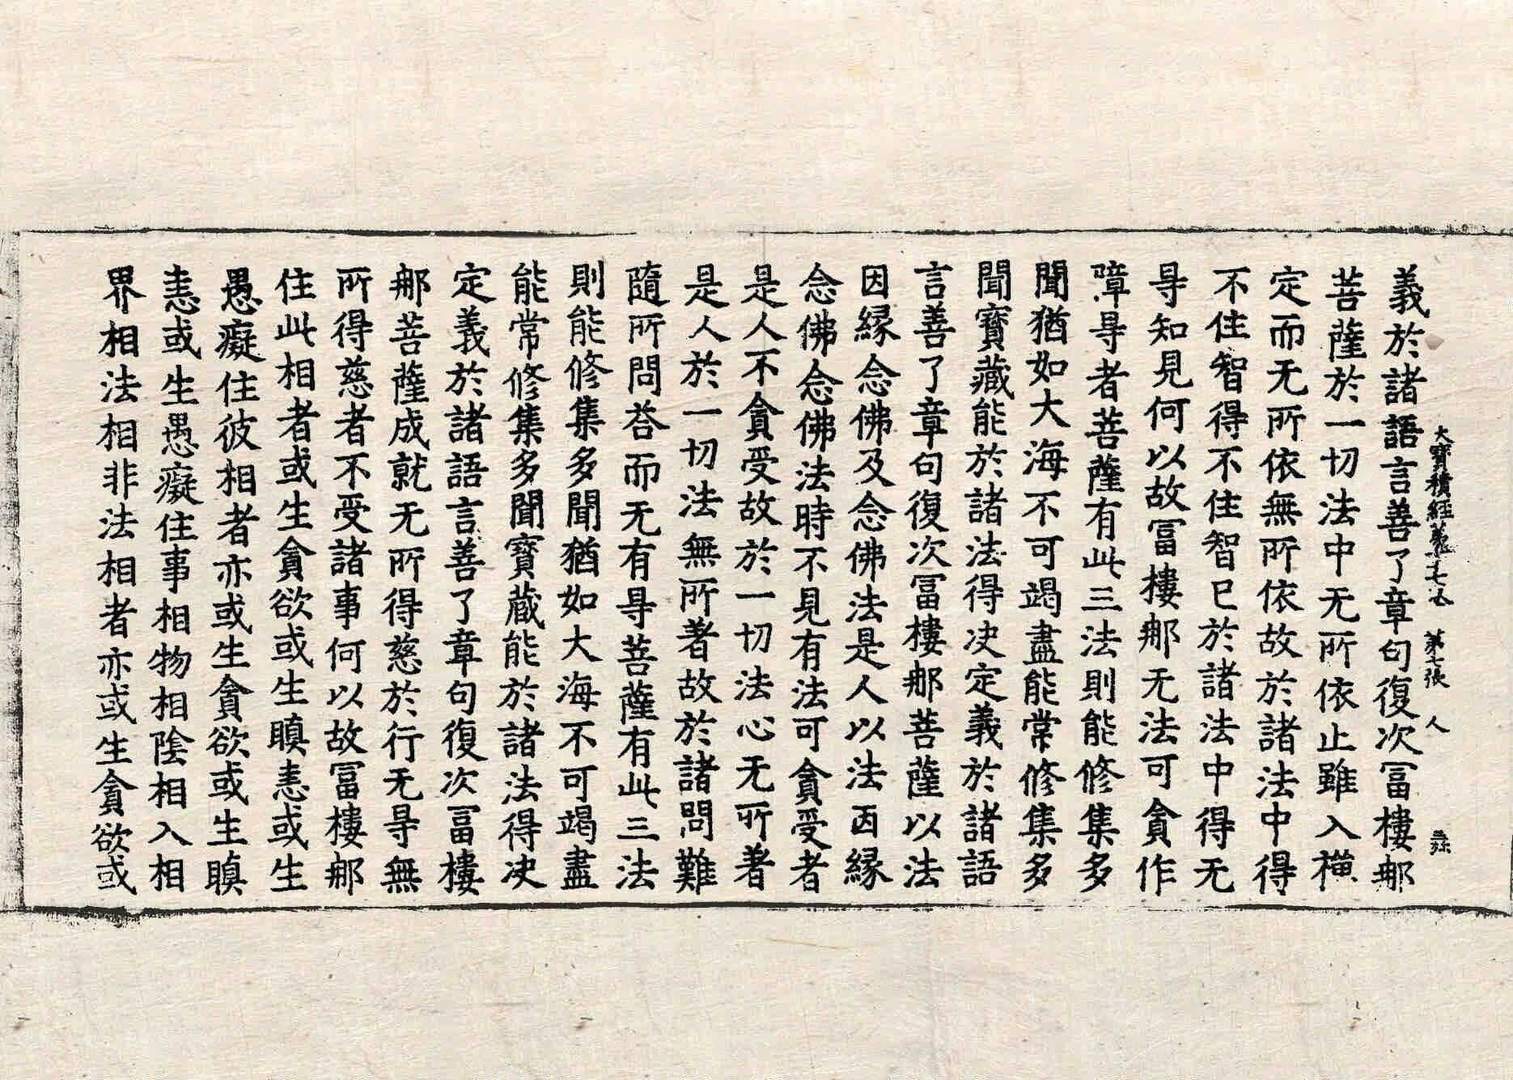 大寶積經卷 第七張 人
義於諸語言善了章句復次冨樓那
菩薩於一切法中无所依止雖入禪
定而无所依無所依故於諸法中得
不住智得不住智已於諸法中得无
㝵知見何以故冨樓那无法可貪作
障㝵者菩薩有此三法則能修集多
聞猶如大海不可竭盡能常修集多
聞寶藏能於諸法得决定義於諸語
言善了章句復次冨樓那菩薩以法
因緣念佛及念佛法是人以法因緣
念佛念佛法時不見有法可貪受者
是人不貪受故於一切法心无所著
是人於一切法無所著故於諸問難
隨所問荅而无有㝵菩薩有此三法
則能修集多聞猶如大海不可竭盡
能常修集多聞寶藏能於諸法得决
定義於諸語言善了章句復次冨樓
那菩薩成就无所得慈於行无㝵無
所得慈者不受諸事何以故冨樓那
住此相者或生貪欲或生瞋恚或生
愚癡住彼相者亦或生貪欲或生瞋
恚或生愚癡住事相物相陰相入相
界相法相非法相者亦或生貪欲或